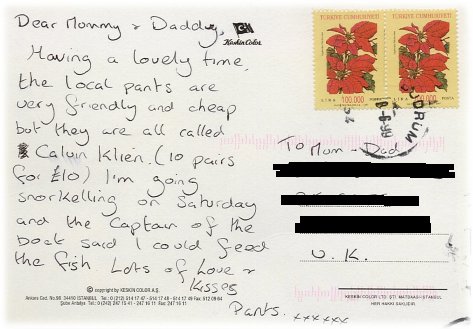 Dear Mommy & Daddy,
Having a lovely time,
the local pants are
very friendly and cheap
but they are all called
Calvin Klien. (10 pairs
for £10) I'm going
snorkelling on Saturday
and the Captain of the
boat said I could feed
the fish. Lots of Love &
Kisses
Pants. xxxxxx
Keskin Color
TÜRKİYE CUMHURİYETİ
TÜRKİYE CUMHURİYETİ
LIRA 100.000 POSTA
LIRA 100.000 POSTA
BODRUM
8-6-99
To Mum & Dad
U.K.
© copyright by KESKIN COLOR A.Ş.
Ankara Cad. No. 98 34410 İSTANBUL Tel.: 0 (212) 514 17 47 - 514 17 48 - 514 17 49 Fax: 512 09 64
Şube Antalya Tel.: 0 (242) 247 15 41 - 247 16 11 Fax: 247 16 11
KESKIN COLOR LTD. STİ. MATBAASI-İSTANBUL
HER HAKKI SAKLIDIR.